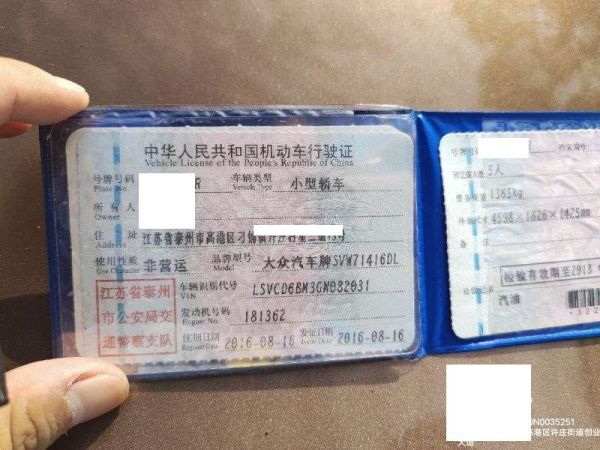 中华人民共和国机动车行驶证
Vehicle License of the People's Republic of China
号牌号码 Plate No. R 车辆类型 Vehicle Type 小型轿车
所有人 Owner
住址 江苏省泰州市高港区刁铺
使用性质 Use Character 非营运 品牌型号 Model 大众汽车牌SVW71416DL
江苏省泰州
市公安局交
通警察支队
车辆识别代号 VIN LSVCD6BM3GN082031
发动机号码 Engine No. 181362
注册日期 Register Date 2016-08-16 发证日期 Issue Date 2016-08-16
号牌号码 档案编号
核定载人数 5人
整备质量 1365kg
外廓尺寸 4598×1826×1425mm
检验有效期至2018
检验记录
汽油
N0035251
港区许庄街道创业
大道